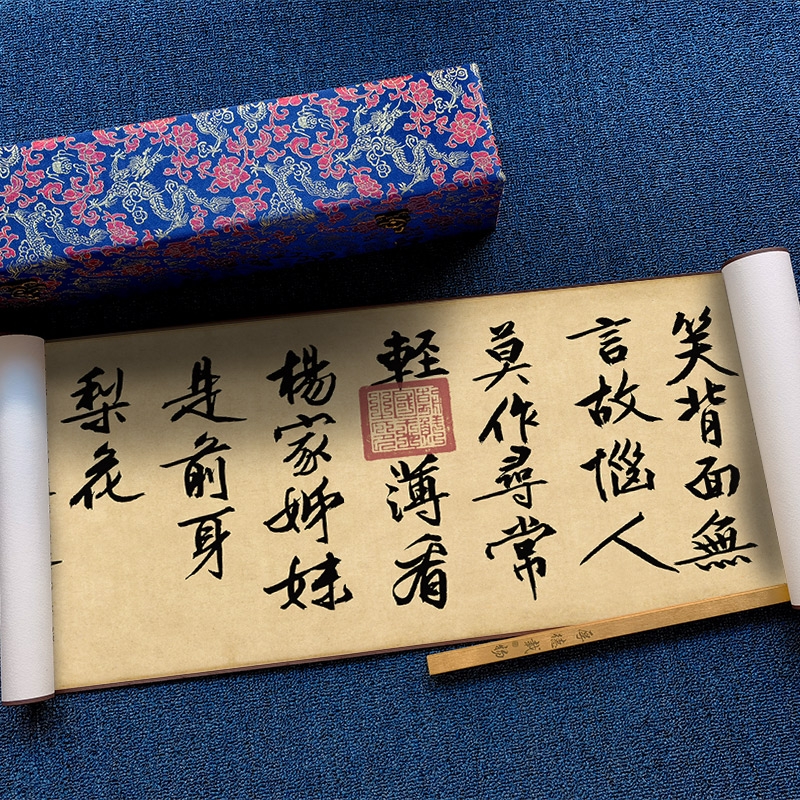 笑背面無
言故惱人
莫作尋常
輕薄看
楊家姊妹
是前身
梨花
厚德載物